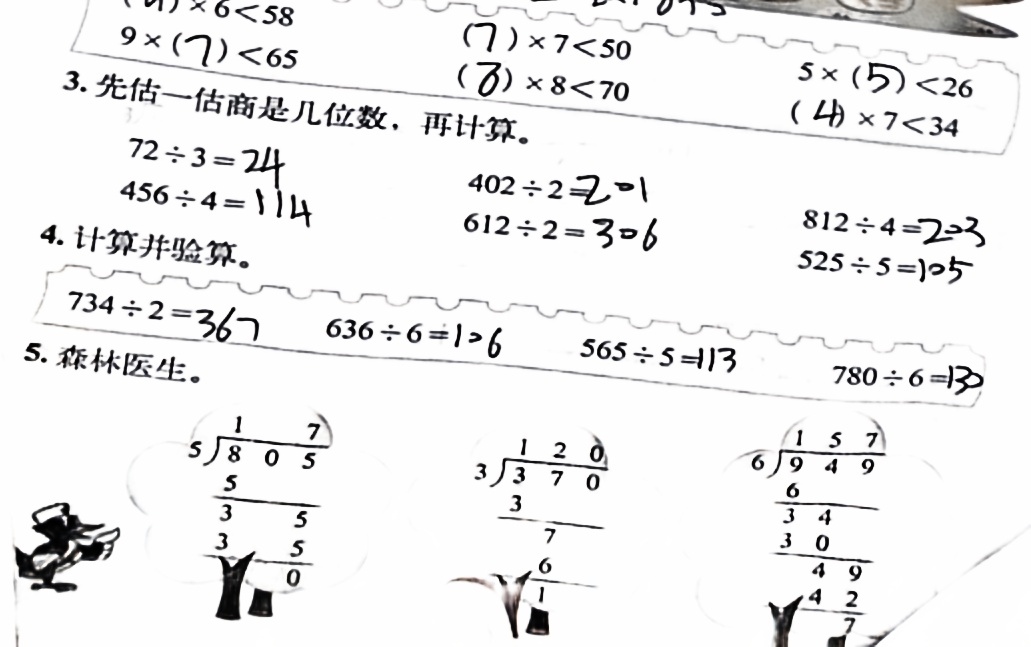 ×6<58
9×(7)<65
(7)×7<50
(8)×8<70
5×(5)<26
(4)×7<34
3. 先估一估商是几位数，再计算。
72÷3=24
402÷2=201
812÷4=203
456÷4=114
612÷2=306
525÷5=105
4. 计算并验算。
734÷2=367
636÷6=106
565÷5=113
780÷6=130
5. 森林医生。
1 7
5 8 0 5
5
3 5
3 5
0
1 2 0
3 3 7 0
3
7
6
1
1 5 7
6 9 4 9
6
3 4
3 0
4 9
4 2
7